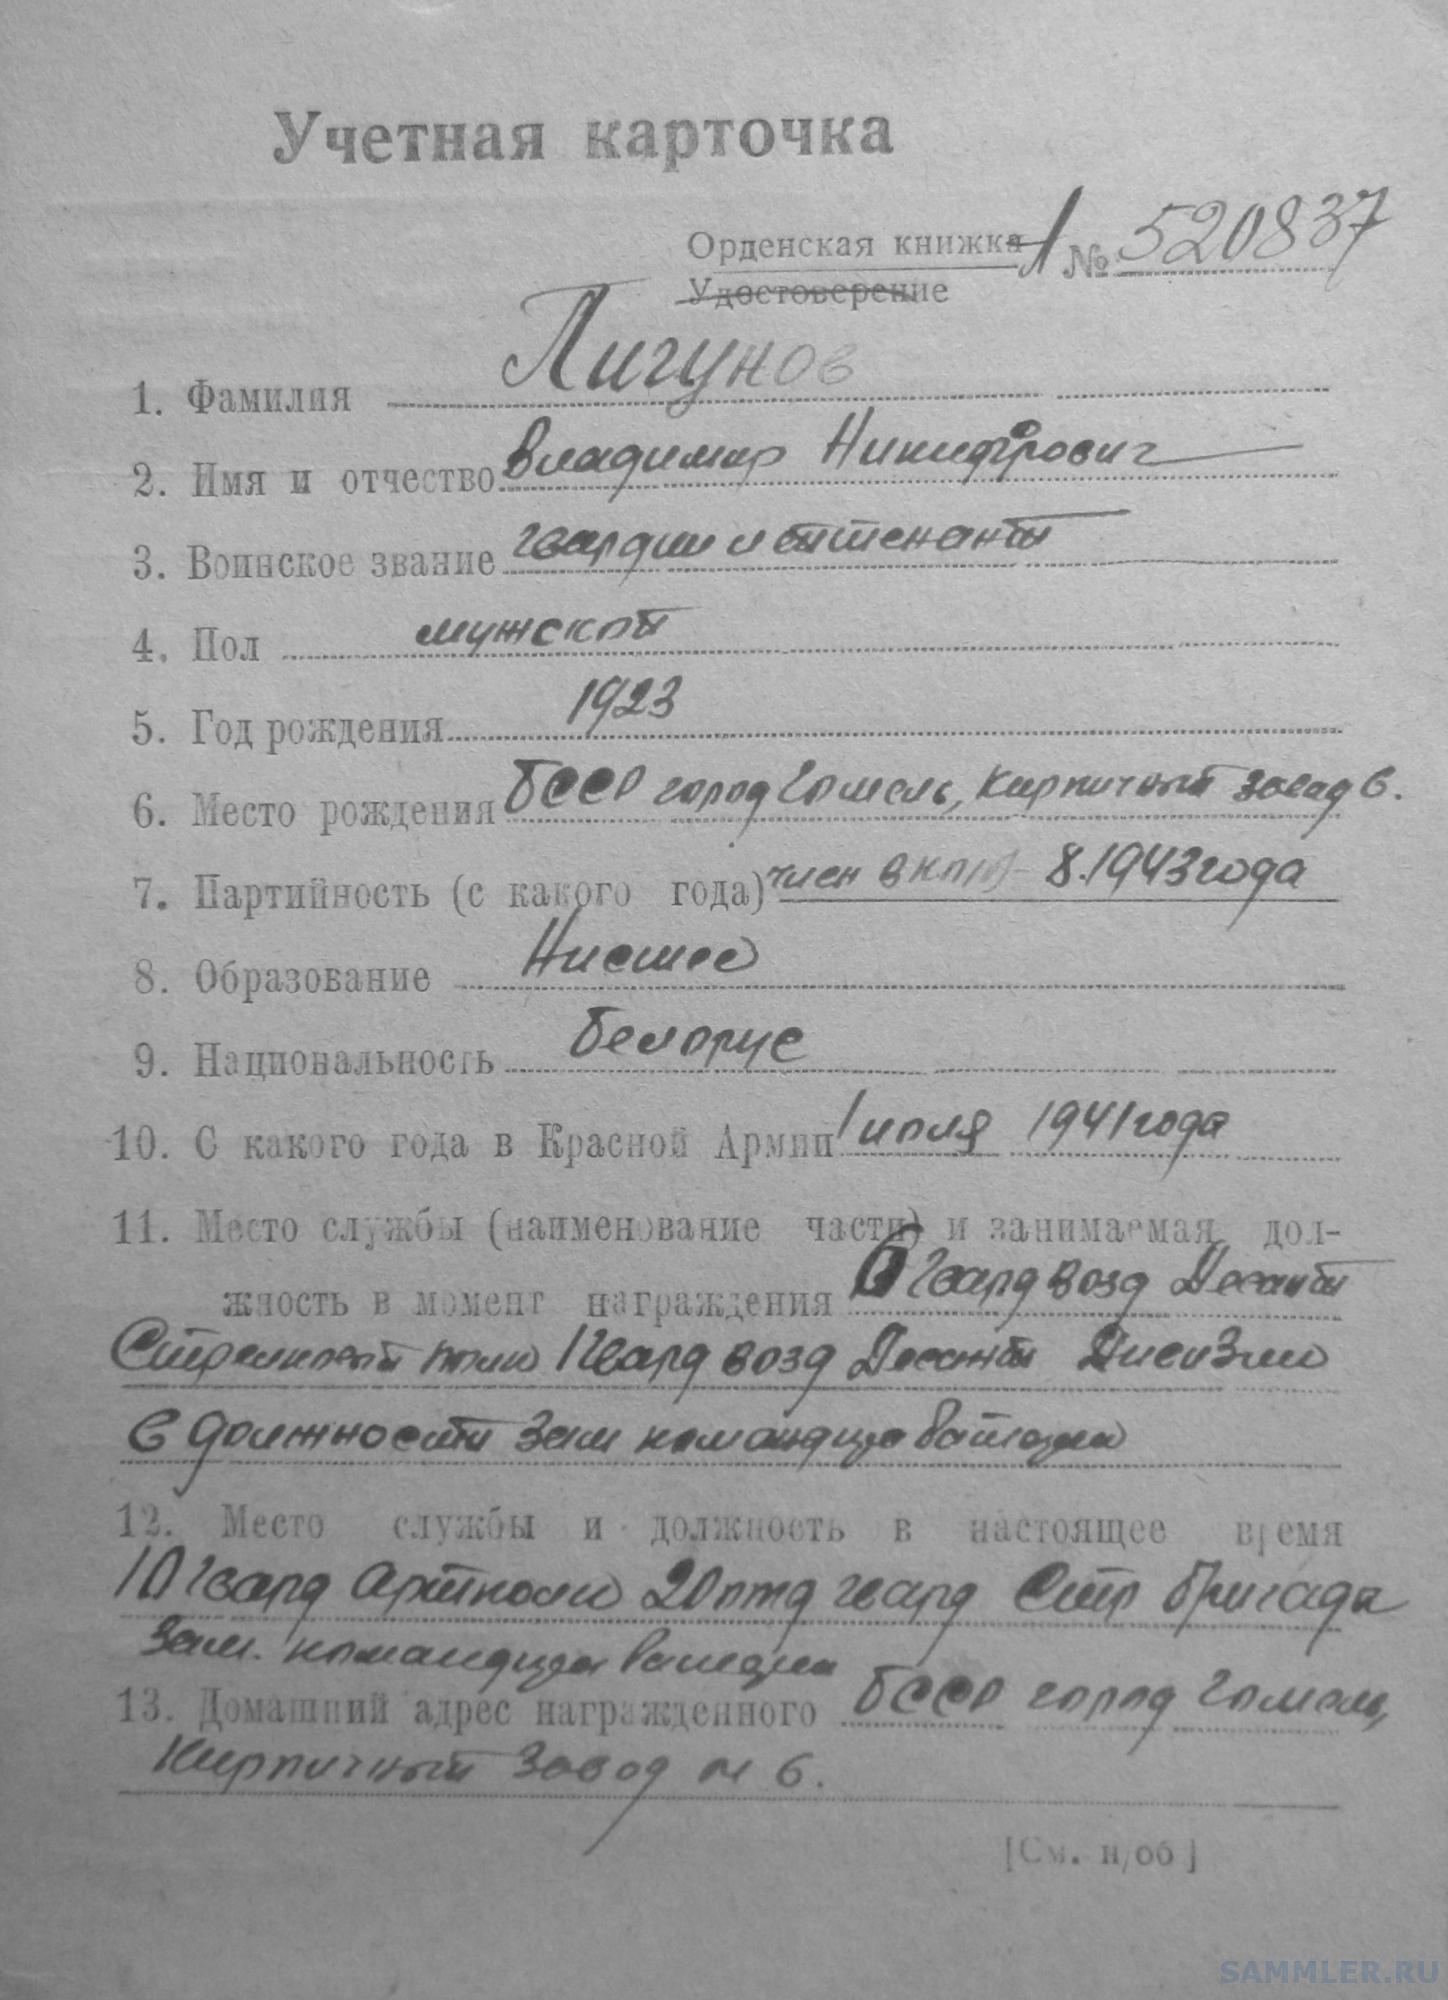 Учетная карточка
Орденская книжка № 520837
Удостоверение
1. Фамилия Лигунов
2. Имя и отчество Владимир Никифорович
3. Воинское звание гвардии лейтенант
4. Пол мужской
5. Год рождения 1923
6. Место рождения БССР город Гомель, Кирпичный завод 6.
7. Партийность (с какого года) член ВКП(б) 8.1943 года
8. Образование Низшее
9. Национальность белорус
10. С какого года в Красной Армии 1 июля 1941 года
11. Место службы (наименование части) и занимаемая дол-
жность в момент награждения 6 Гвард возд Десант
Стрелковый полк 1 Гвард возд Десант Дивизии
в должности зам командира батареи
12. Место службы и должность в настоящее время
10 Гвард Артполк 20 отд гвард Стр бригада
зам. командира батареи
13. Домашний адрес награжденного БССР город Гомель,
Кирпичный завод № 6.
[См. н/об]
SAMMLER.RU